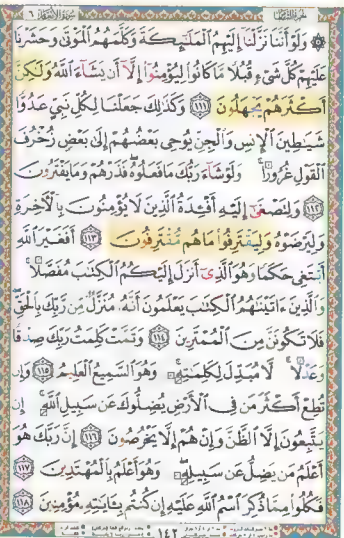 ۞ وَلَوْ أَنَّنَا نَزَّلْنَا إِلَيْهِمُ الْمَلَٰٓئِكَةَ وَكَلَّمَهُمُ الْمَوْتَىٰ وَحَشَرْنَا
عَلَيْهِمْ كُلَّ شَىْءٍ قُبُلًا مَّا كَانُوا لِيُؤْمِنُوٓا إِلَّآ أَن يَشَآءَ اللَّهُ وَلَٰكِنَّ
أَكْثَرَهُمْ يَجْهَلُونَ ١١١ وَكَذَٰلِكَ جَعَلْنَا لِكُلِّ نَبِىٍّ عَدُوًّا
شَيَٰطِينَ الْإِنسِ وَالْجِنِّ يُوحِى بَعْضُهُمْ إِلَىٰ بَعْضٍ زُخْرُفَ
الْقَوْلِ غُرُورًا ۚ وَلَوْ شَآءَ رَبُّكَ مَا فَعَلُوهُ ۖ فَذَرْهُمْ وَمَا يَفْتَرُونَ
١١٢ وَلِتَصْغَىٰٓ إِلَيْهِ أَفْـِٔدَةُ الَّذِينَ لَا يُؤْمِنُونَ بِالْءَاخِرَةِ
وَلِيَرْضَوْهُ وَلِيَقْتَرِفُوا مَا هُم مُّقْتَرِفُونَ ١١٣ أَفَغَيْرَ اللَّهِ
أَبْتَغِى حَكَمًا وَهُوَ الَّذِىٓ أَنزَلَ إِلَيْكُمُ الْكِتَٰبَ مُفَصَّلًا ۚ
وَالَّذِينَ ءَاتَيْنَٰهُمُ الْكِتَٰبَ يَعْلَمُونَ أَنَّهُۥ مُنَزَّلٌ مِّن رَّبِّكَ بِالْحَقِّ ۖ
فَلَا تَكُونَنَّ مِنَ الْمُمْتَرِينَ ١١٤ وَتَمَّتْ كَلِمَتُ رَبِّكَ صِدْقًا
وَعَدْلًا ۚ لَّا مُبَدِّلَ لِكَلِمَٰتِهِۦ ۚ وَهُوَ السَّمِيعُ الْعَلِيمُ ١١٥ وَإِن
تُطِعْ أَكْثَرَ مَن فِى الْأَرْضِ يُضِلُّوكَ عَن سَبِيلِ اللَّهِ ۚ إِن
يَتَّبِعُونَ إِلَّا الظَّنَّ وَإِنْ هُمْ إِلَّا يَخْرُصُونَ ١١٦ إِنَّ رَبَّكَ هُوَ
أَعْلَمُ مَن يَضِلُّ عَن سَبِيلِهِۦ ۖ وَهُوَ أَعْلَمُ بِالْمُهْتَدِينَ ١١٧
فَكُلُوا مِمَّا ذُكِرَ اسْمُ اللَّهِ عَلَيْهِ إِن كُنتُم بِـَٔايَٰتِهِۦ مُؤْمِنِينَ ١١٨
١٤٢